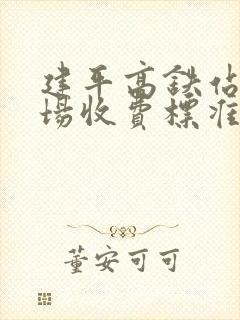 建平高铁站
场收费标准
董安可可